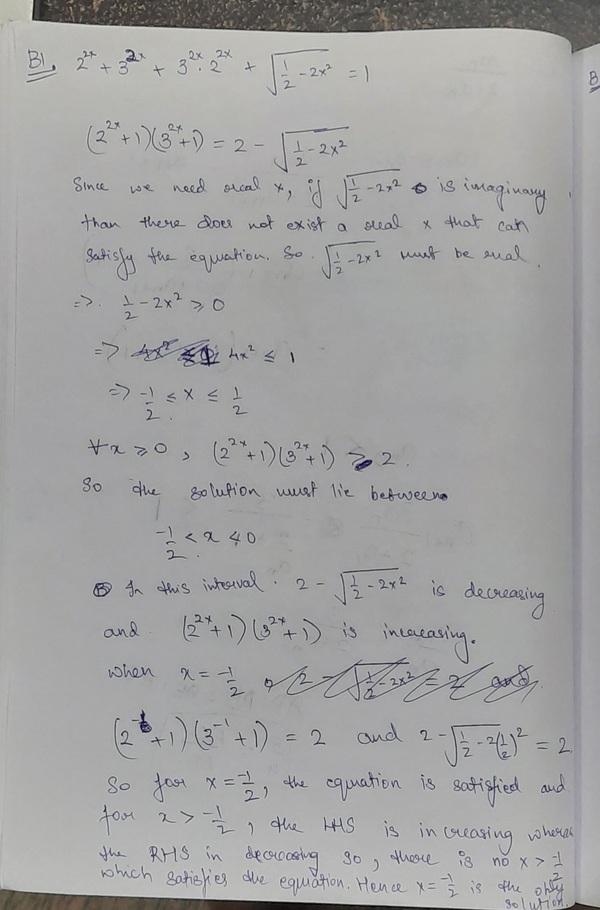 B1. 2^{2x} + 3^{2x} + 3^{2x}·2^{2x} + √(1/2 - 2x²) = 1
(2^{2x}+1)(3^{2x}+1) = 2 - √(1/2 - 2x²)
Since we need real x, if √(1/2 - 2x²) is imaginary
than there does not exist a real x that can
satisfy the equation. So √(1/2 - 2x²) must be real.
=>. 1/2 - 2x² ≥ 0
=> 4x² ≤ 1
=> -1/2 ≤ x ≤ 1/2
∀x ≥ 0, (2^{2x}+1)(3^{2x}+1) > 2.
So the solution must lie between
-1/2 < x < 0
In this interval. 2 - √(1/2 - 2x²) is decreasing
and (2^{2x}+1)(3^{2x}+1) is increasing.
when x = -1/2,
(2^{-1}+1)(3^{-1}+1) = 2 and 2 - √(1/2 - 2(1/2)²) = 2
So for x = -1/2, the equation is satisfied and
for x > -1/2, the LHS is increasing whereas
the RHS in decreasing so, there is no x > -1/2
which satisfies the equation. Hence x = -1/2 is the only
solution.
B